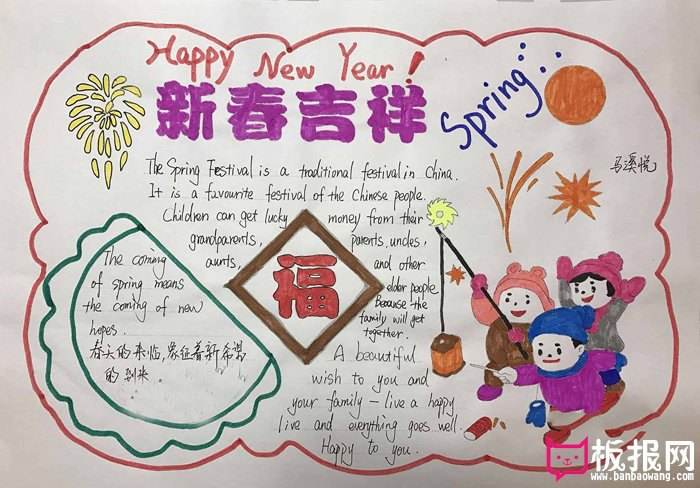 Happy New Year!
新春吉祥
Spring:
马溪悦
The Spring Festival is a traditional festival in China.
It is a favourite festival of the Chinese people.
Children can get lucky money from their
grandparents, parents, uncles,
aunts, and other
elder people
Because the
family will get
together.
福
The coming
of spring means
the coming of new
hopes
春天的来临,象征着新希望
的到来
A beautiful
wish to you and
your family - live a happy
live and everything goes well.
Happy to you.
板报网
www.banbaowang.com